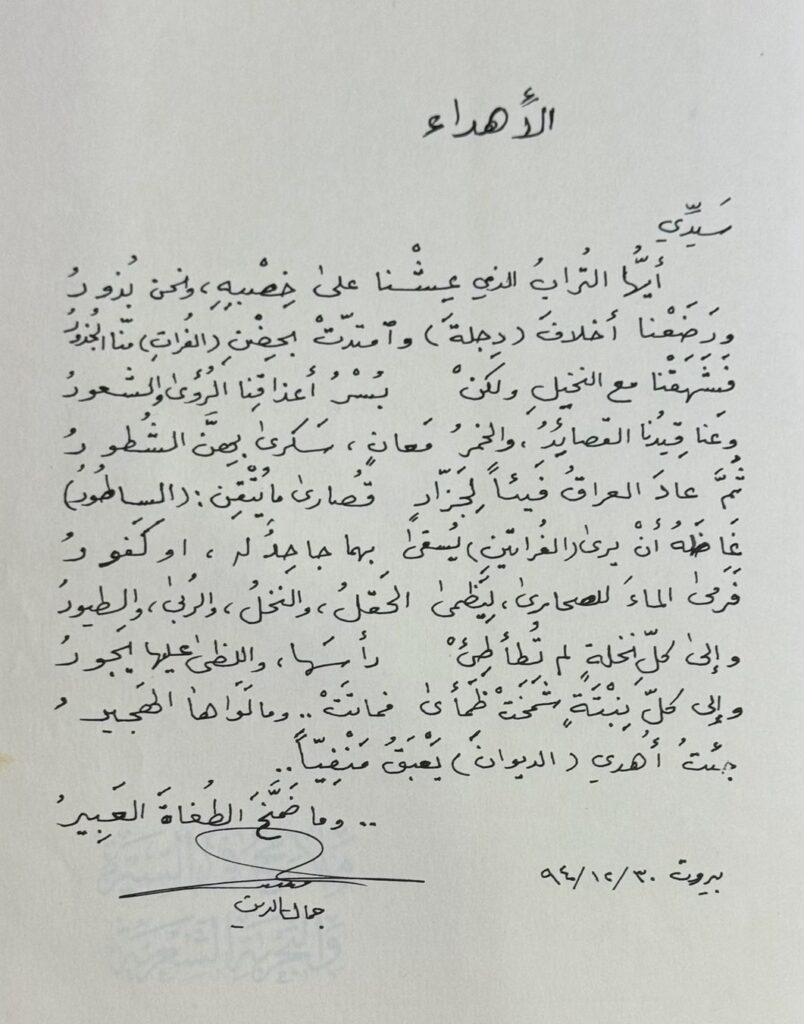 الأهداء
سَيِّدي
أيّها التُرابُ الذي عِشْنا على خِصْبِهِ، ونحن بُذورُ
ورَضَعْنا أخلافَ (دِجلةَ) وامتدّتْ بحِضْنِ (الفُراتِ) منّا الجُذورُ
فَشَهَقْنا مع النخيلِ ولكنْ بُسْرُ أعذاقِنا الرُؤى والشعورُ
وعَناقِيدُنا القصائِدُ، والخمرُ مَعانٍ، سَكرى بِهِنَّ الشُطورُ
ثُمَّ عادَ العراقُ فَيئاً لِجَزّارٍ قُصارى ما يُتْقِن: (السّاطُورُ)
غَاظَهُ أنْ يرى (الفُراتَينِ) يُسقى بهما جاحِدٌ له، او كَفورُ
فَرمى الماءَ للصحارى، لِيَظمى الحَقلُ، والنخلُ، والرُبى، والطيورُ
وإلى كلِّ نخلةٍ لم تُطأطِئْ رأسَها، واللظى عليها يَجورُ
وإلى كلّ نِبْتَةٍ شَمَخَتْ ظَمأى فماتَتْ .. وما لَوَاها الهَجيرُ
جئتُ أُهدي (الديوانَ) يَعْبَقُ مَنْفِيّاً..
.. وما ضَمَّخَ الطُغاةَ العَبِيرُ
بيروت ٩٤/١٢/٣٠
جمال الدين